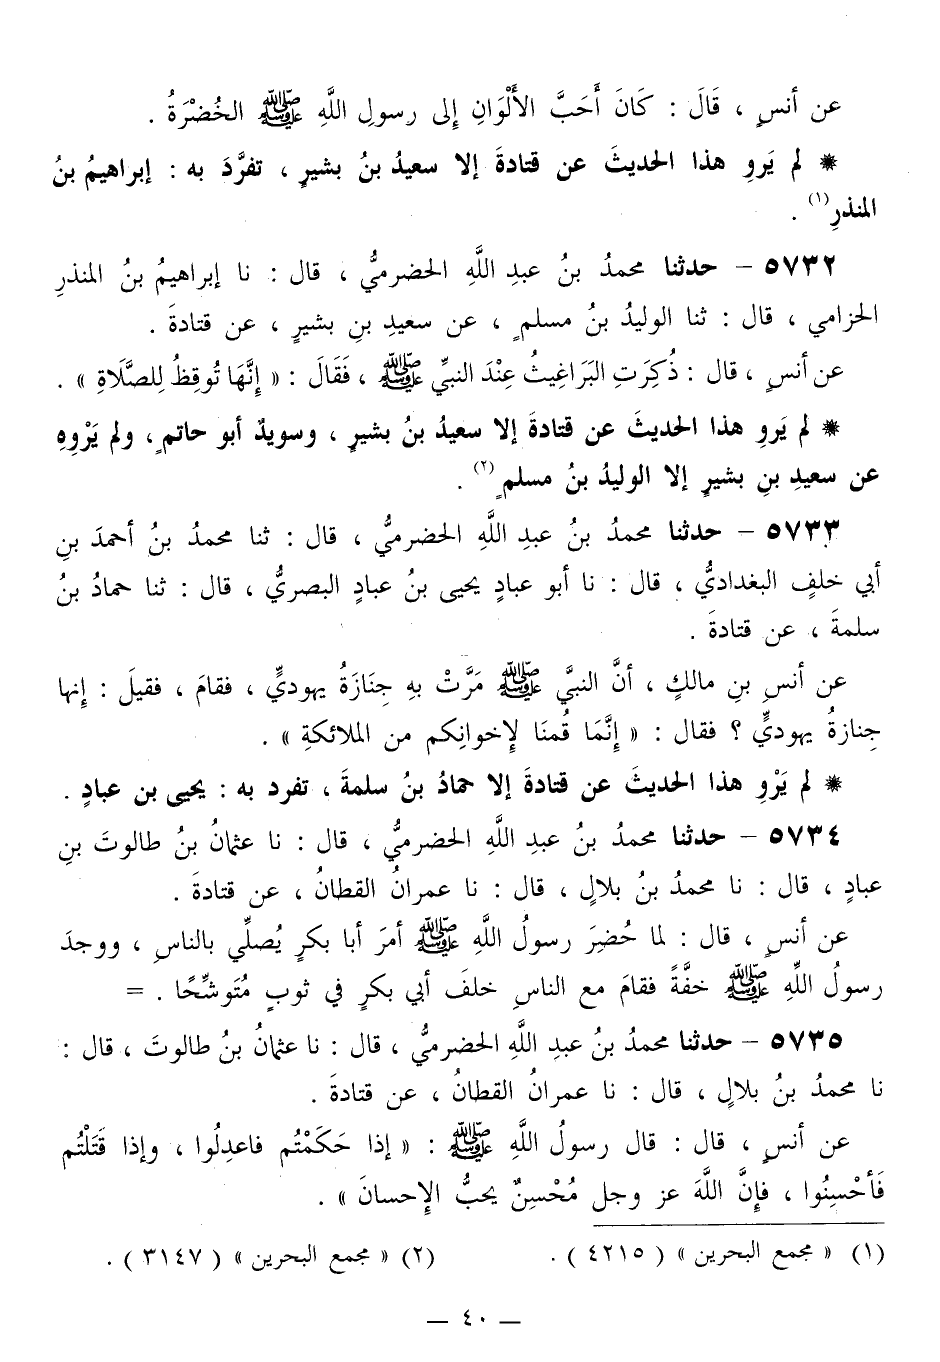 عن أنسٍ ، قَالَ : كَانَ أَحَبَّ الأَلْوَانِ إلى رسولِ اللَّهِ ﷺ الخُضْرَةُ .
* لم يَروِ هذا الحديثَ عن قتادةَ إلا سعيدُ بنُ بشيرٍ ، تفرَّدَ به : إبراهيمُ بنُ
المنذرِ(١) .
٥٧٣٢ - حدثنا محمدُ بنُ عبدِ اللَّهِ الحضرميُّ ، قال : نا إبراهيمُ بنُ المنذرِ
الحزامي ، قال : ثنا الوليدُ بنُ مسلمٍ ، عن سعيدِ بنِ بشيرٍ ، عن قتادةَ .
عن أنسٍ ، قال : ذُكِرَتِ البَرَاغِيثُ عِنْدَ النبيِّ ﷺ ، فَقَالَ : « إِنَّهَا تُوقِظُ لِلصَّلَاةِ » .
* لم يَروِ هذا الحديثَ عن قتادةَ إلا سعيدُ بنُ بشيرٍ ، وسويدٌ أبو حاتمٍ ، ولم يَرْوِهِ
عن سعيدِ بنِ بشيرٍ إلا الوليدُ بنُ مسلمٍ(٢) .
٥٧٣٣ - حدثنا محمدُ بنُ عبدِ اللَّهِ الحضرميُّ ، قال : ثنا محمدُ بنُ أحمدَ بنِ
أبي خلفٍ البغداديُّ ، قال : نا أبو عبادٍ يحيى بنُ عبادٍ البصريُّ ، قال : ثنا حمادُ بنُ
سلمةَ ، عن قتادةَ .
عن أنسِ بنِ مالكٍ ، أنَّ النبيَّ ﷺ مَرَّتْ بهِ جِنَازَةُ يهوديٍّ ، فقامَ ، فقيلَ : إنها
جِنازةُ يهوديٍّ ؟ فقال : « إِنَّمَا قُمنَا لإخوانِكم من الملائكةِ » .
* لم يَرْوِ هذا الحديثَ عن قتادةَ إلا حمادُ بنُ سلمةَ ، تفرد به : يحيى بن عبادٍ .
٥٧٣٤ - حدثنا محمدُ بنُ عبدِ اللَّهِ الحضرميُّ ، قال : نا عثمانُ بنُ طالوتَ بنِ
عبادٍ ، قال : نا محمدُ بنُ بلالٍ ، قال : نا عمرانُ القطانُ ، عن قتادةَ .
عن أنسٍ ، قال : لما حُضِرَ رسولُ اللَّهِ ﷺ أمرَ أبا بكرٍ يُصلِّي بالناسِ ، ووجدَ
رسولُ اللَّهِ ﷺ خفَّةً فقامَ مع الناسِ خلفَ أبي بكرٍ في ثوبٍ مُتَوشِّحًا . =
٥٧٣٥ - حدثنا محمدُ بنُ عبدِ اللَّهِ الحضرميُّ ، قال : نا عثمانُ بنُ طالوتَ ، قال :
نا محمدُ بنُ بلالٍ ، قال : نا عمرانُ القطانُ ، عن قتادةَ .
عن أنسٍ ، قال : قال رسولُ اللَّهِ ﷺ : « إذا حَكَمْتُم فاعدِلُوا ، وإذا قَتَلْتُم
فَأحْسِنُوا ، فإنَّ اللَّهَ عز وجل مُحْسِنٌ يحبُّ الإحسانَ » .
(١) « مجمع البحرين » ( ٤٢١٥ ) . (٢) « مجمع البحرين » ( ٣١٤٧ ) .
— ٤٠ —